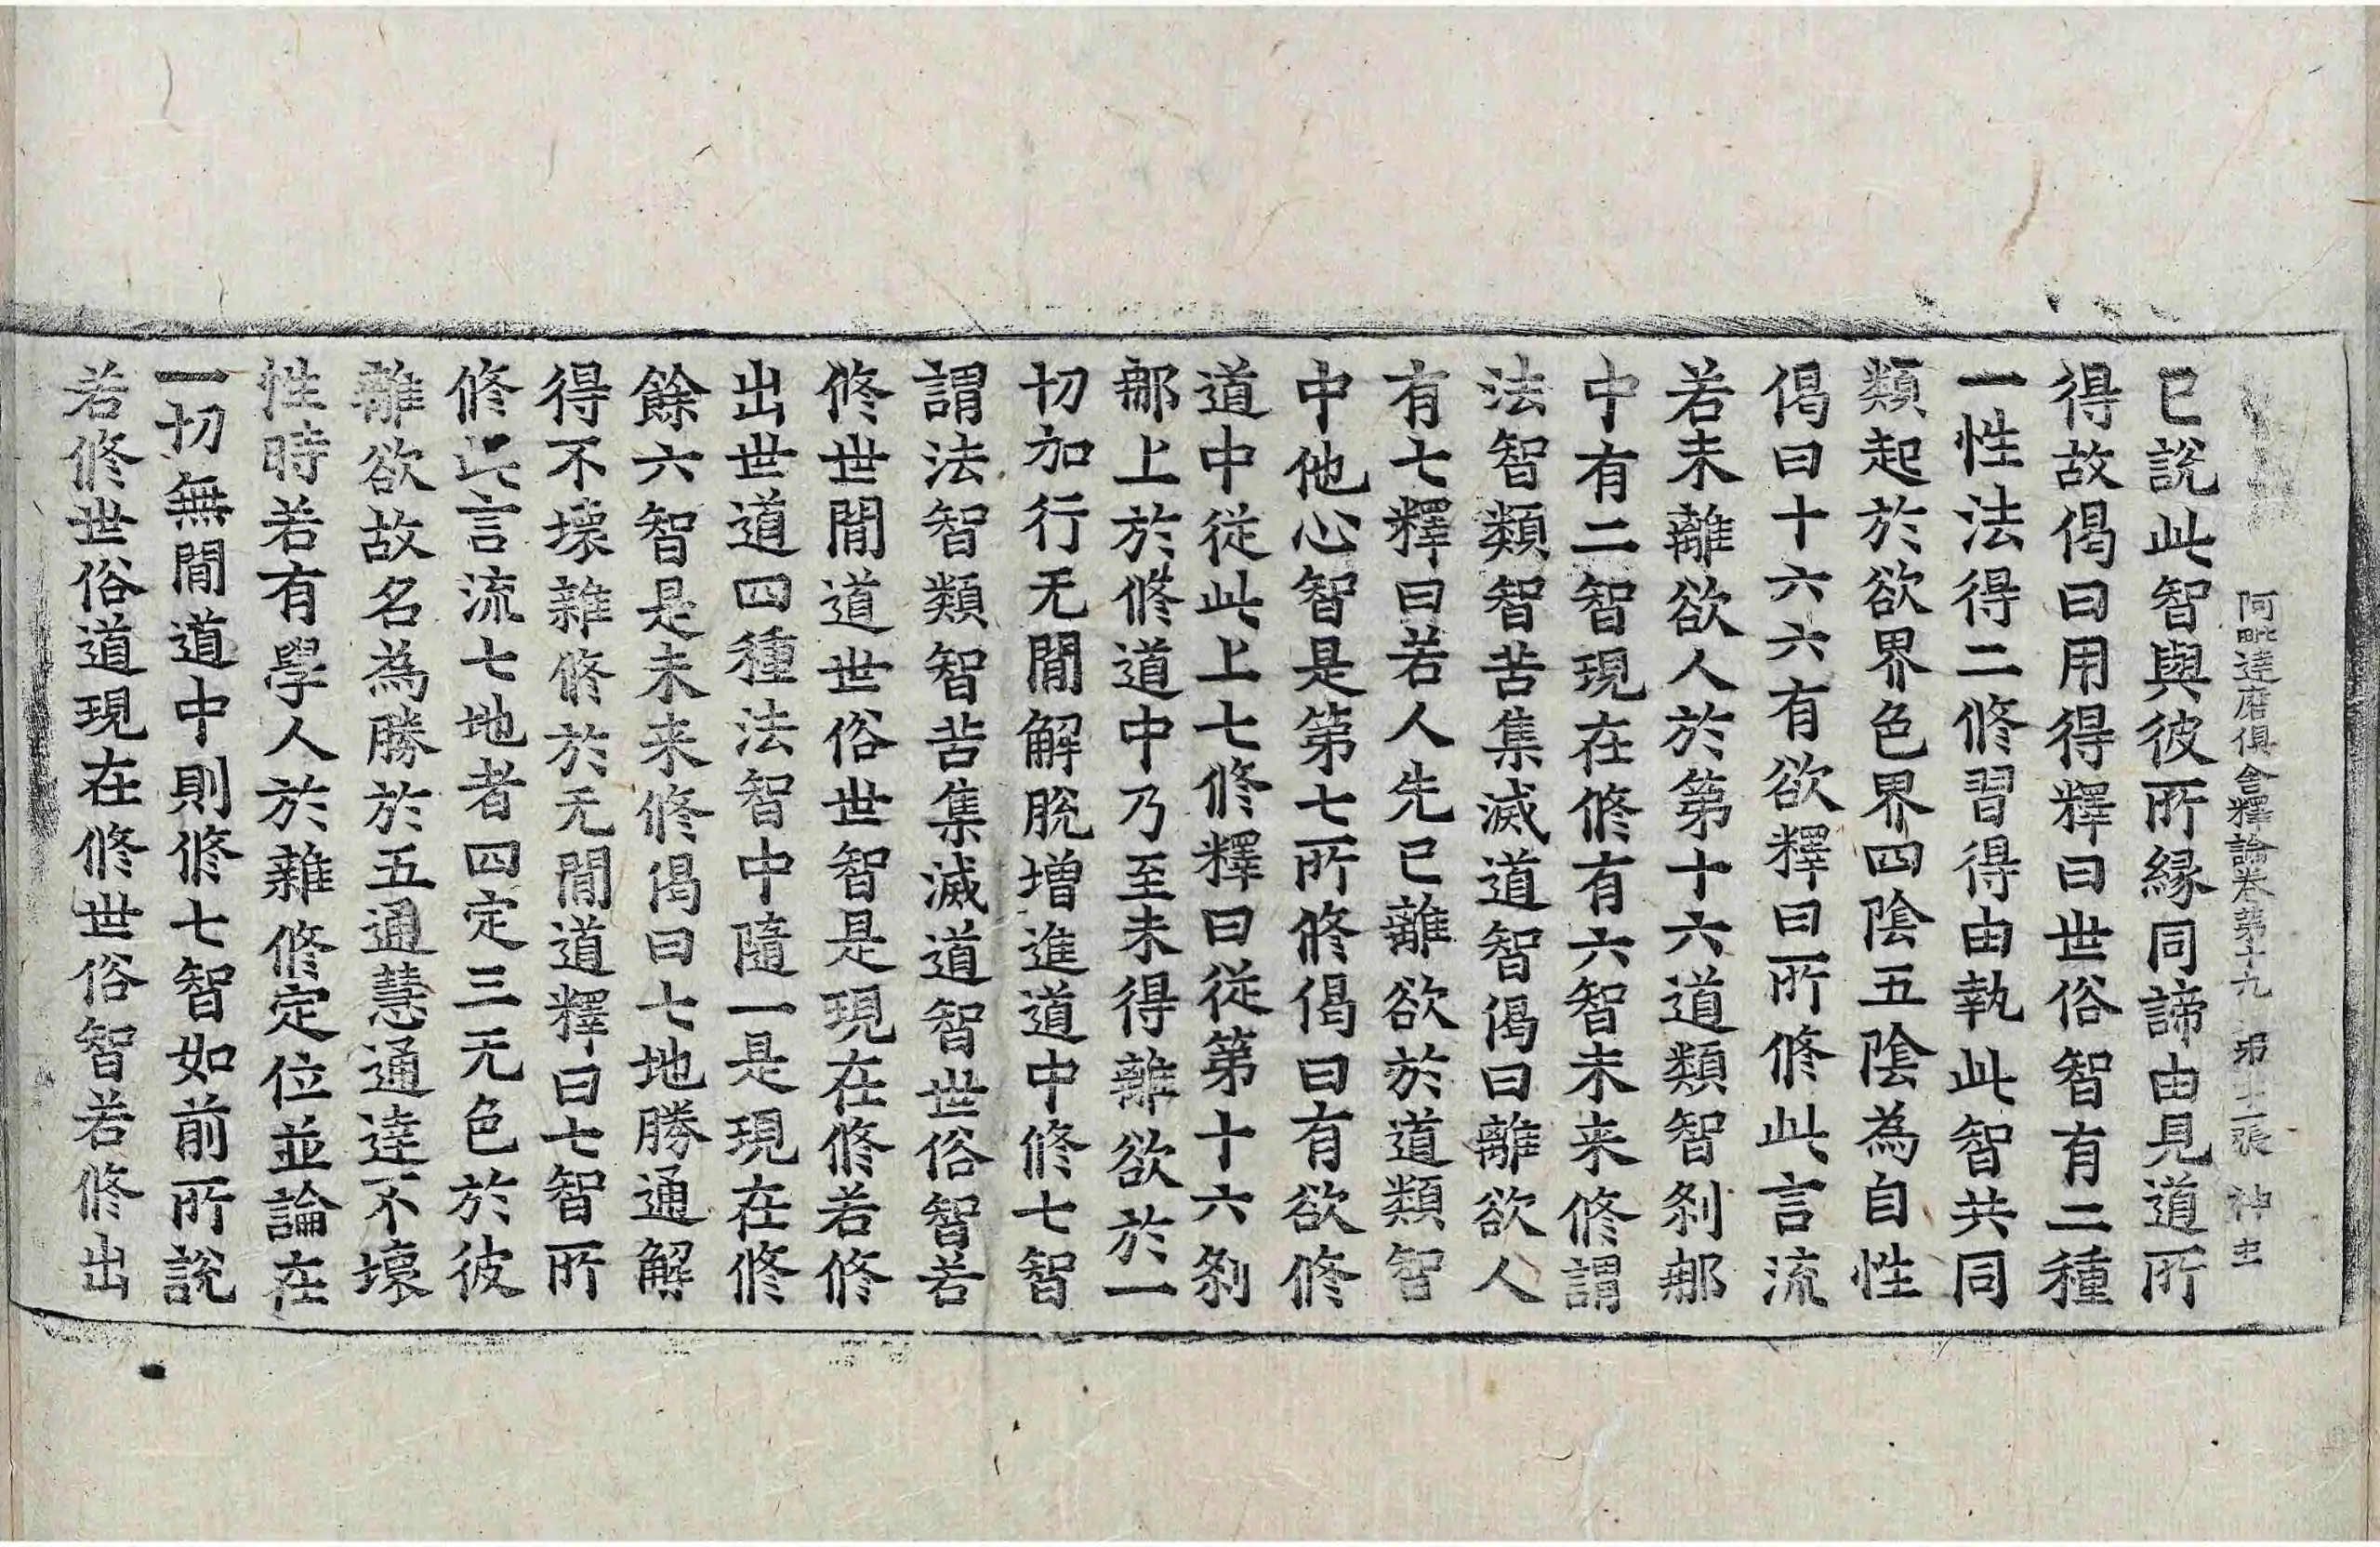 阿毗達磨俱舍釋論卷第十九 第十一張 神
已說此智與彼所緣同諦由見道所
得故偈曰用得釋曰世俗智有二種
一性法得二修習得由執此智共同
類起於欲界色界四陰五陰為自性
偈曰十六六有欲釋曰所修此言流
若未離欲人於第十六道類智剎那
中有二智現在修有六智未来修謂
法智類智苦集滅道智偈曰離欲人
有七釋曰若人先已離欲於道類智
中他心智是第七所修偈曰有欲修
道中從此上七修釋曰從第十六剎
那上於修道中乃至未得離欲於一
切加行无間解脫增進道中修七智
謂法智類智苦集滅道智世俗智若
修世間道世俗世智是現在修若修
出世道四種法智中隨一是現在修
餘六智是未来修偈曰七地勝通解
得不壞雜修於无間道釋曰七智所
修此言流七地者四定三无色於彼
離欲故名為勝於五通慧通達不壞
性時若有學人於雜修定位並論在
一切無間道中則修七智如前所說
若修世俗道現在修世俗智若修出